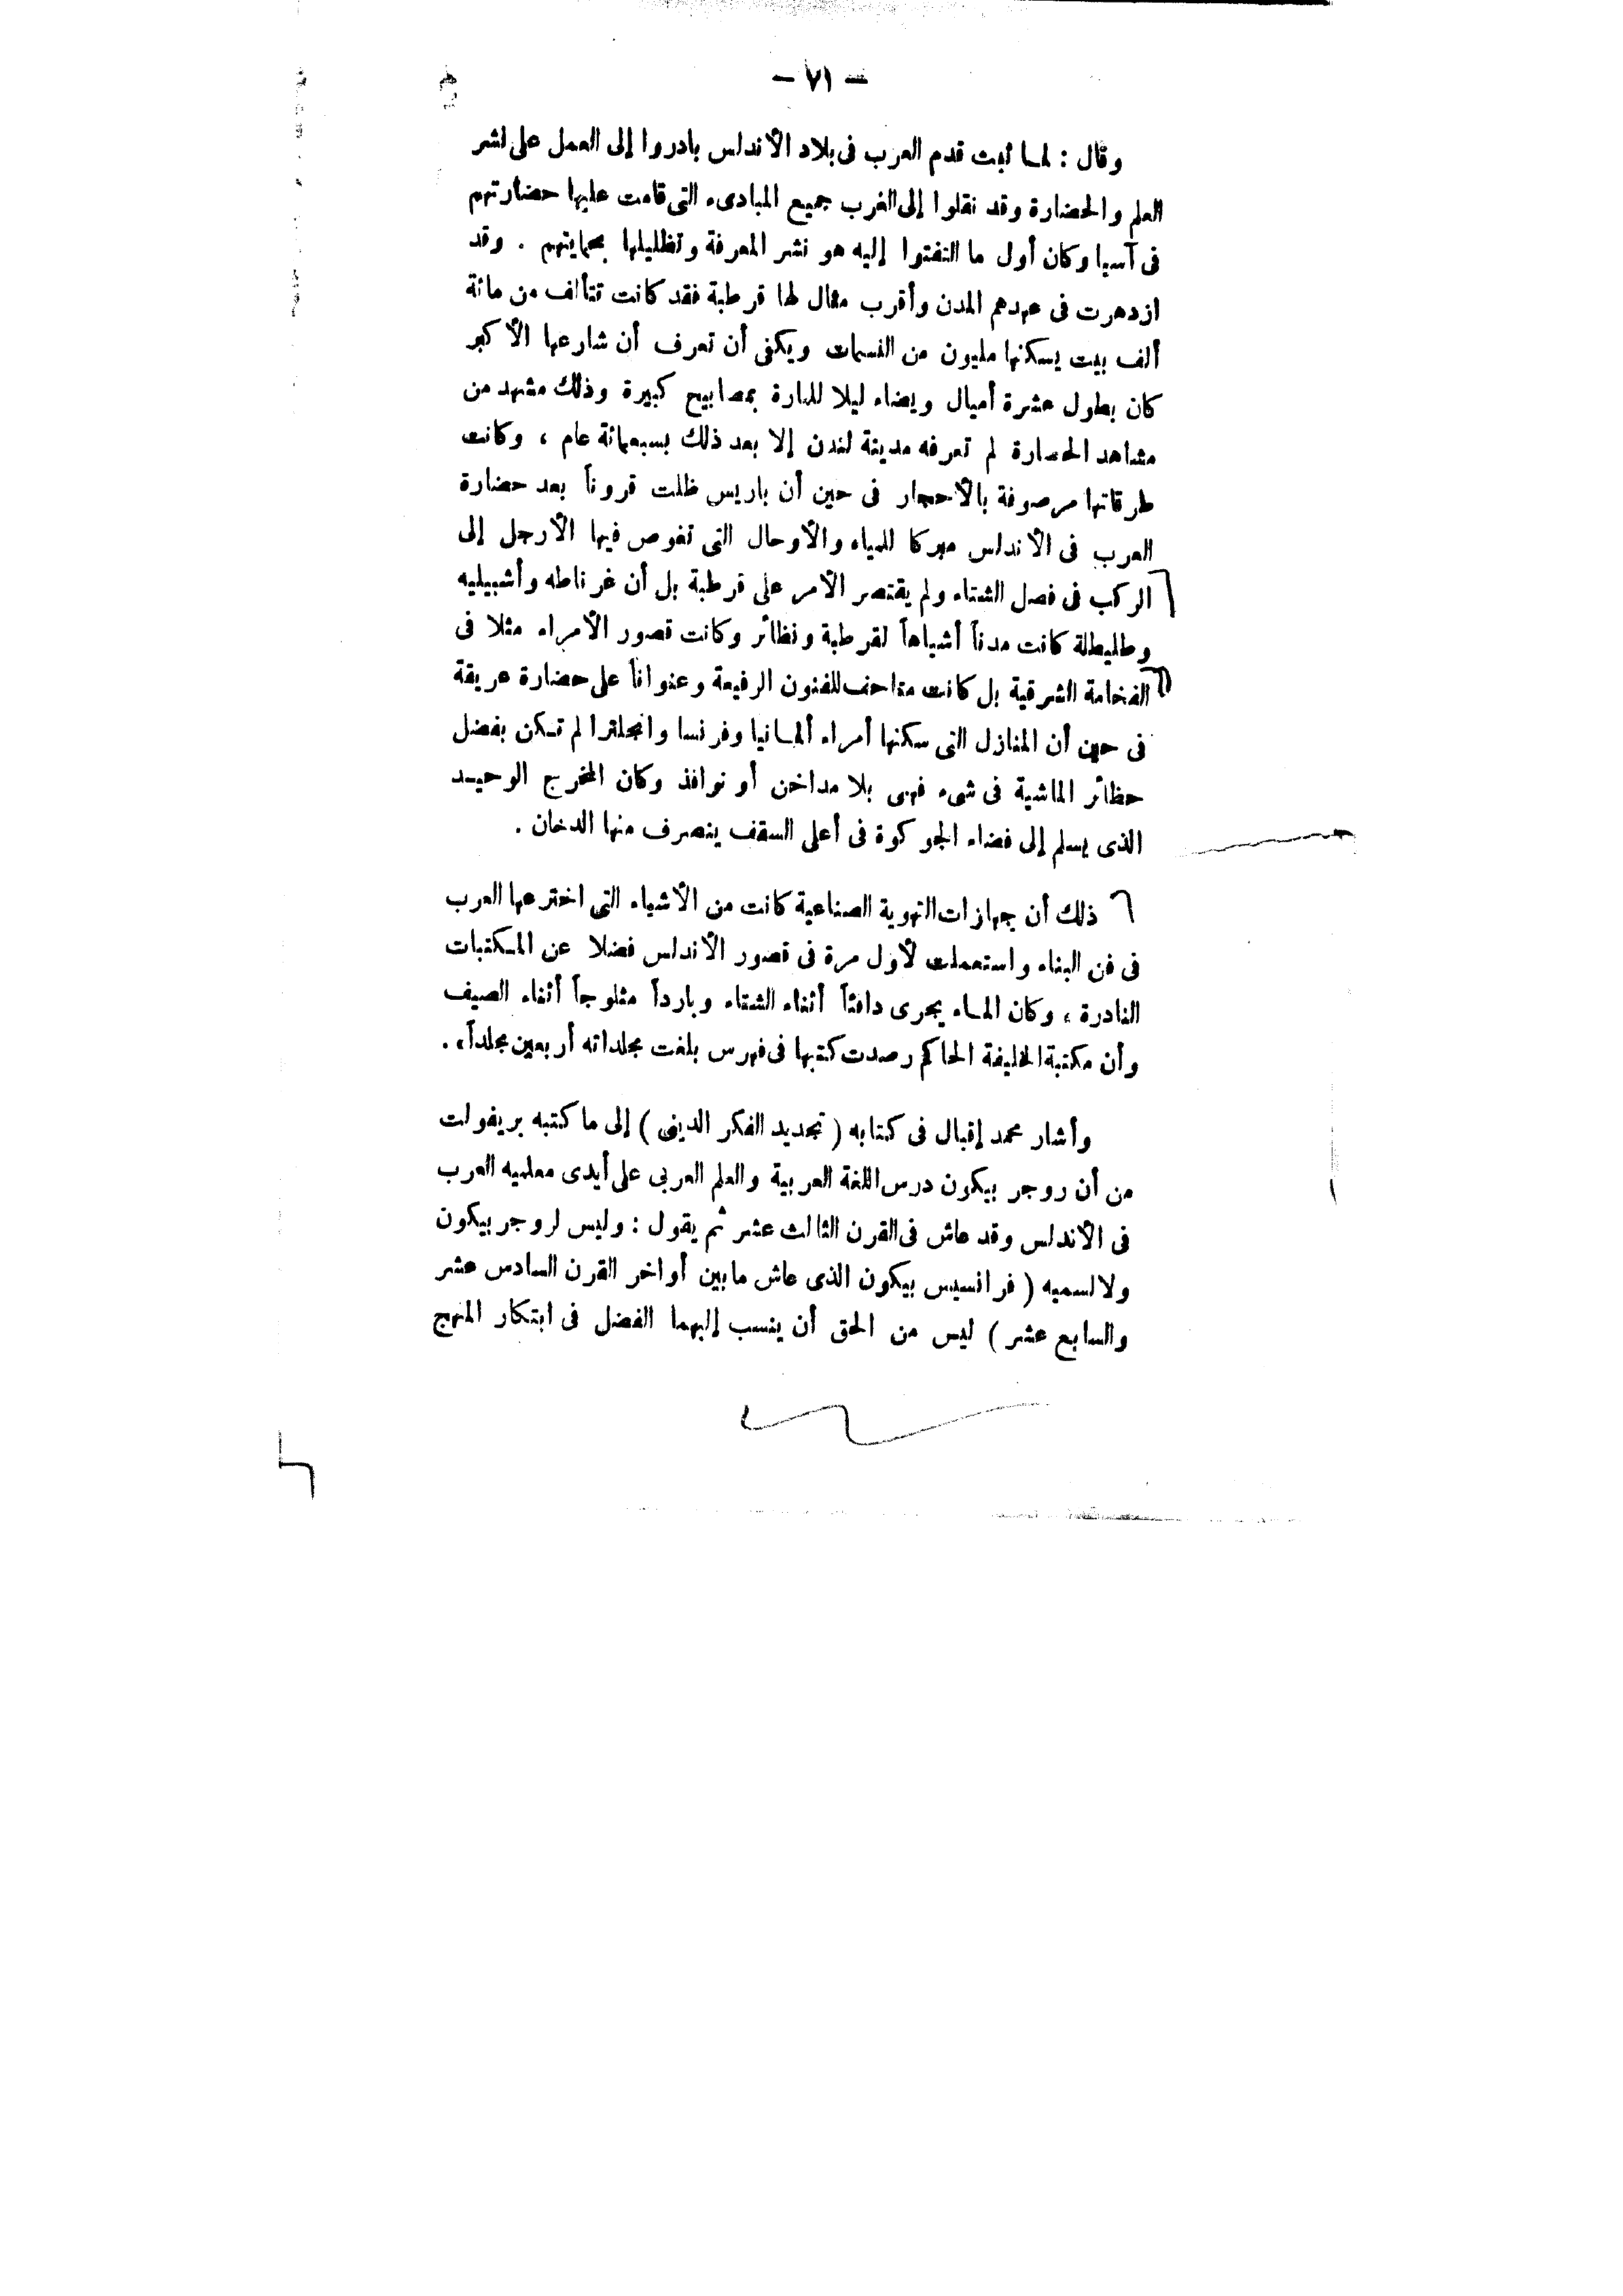 — ٧١ —
وقال : لمـا ثبت قدم العرب فى بلاد الأندلس بادروا إلى العمل على نشر
العلم والحضارة وقد نقلوا إلى الغرب جميع المبادىء التى قامت عليها حضارتهم
فى آسيا وكان أول ما التفتوا إليه هو نشر المعرفة وتظليلها بحمايتهم . وقد
ازدهرت فى عهدهم المدن وأقرب مثال لها قرطبة فقد كانت تتألف من مائة
ألف بيت يسكنها مليون من النسمات ويكفى أن تعرف أن شارعها الأكبر
كان بطول عشرة أميال ويضاء ليلا للمارة بمصابيح كبيرة وذلك مشهد من
مشاهد الحضارة لم تعرفه مدينة لندن إلا بعد ذلك بسبعمائة عام ، وكانت
طرقاتها مرصوفة بالأحجار فى حين أن باريس ظلت قروناً بعد حضارة
العرب فى الأندلس مبركا للمياه والأوحال التى تغوص فيها الأرجل إلى
الركب فى فصل الشتاء ولم يقتصر الأمر على قرطبة بل أن غرناطه وأشبيليه
وطليطلة كانت مدناً أشباهاً لقرطبة ونظائر وكانت قصور الأمراء مثلا فى
الفخامة الشرقية بل كانت متاحف للفنون الرفيعة وعنواناً على حضارة عريقة
فى حين أن المنازل التى سكنها أمراء ألمـانيا وفرنسا وانجلترا لم تـكن بفضل
حظائر الماشية فى شىء فهى بلا مداخن أو نوافذ وكان المخرج الوحيـد
الذى يسلم إلى فضاء الجو كوة فى أعلى السقف ينصرف منها الدخان .
ذلك أن جهازات التهوية الصناعية كانت من الأشياء التى اخترعها العرب
فى فن البناء واستعملت لأول مرة فى قصور الأندلس فضلا عن المـكتبات
النادرة ، وكان المـاء يجرى دافئاً أثناء الشتاء وبارداً مثلوجاً أثناء الصيف
وأن مكتبة الخليفة الحاكم رصدت كتبها فى فهرس بلغت مجلداته أربعين مجلداً، .
وأشار محمد إقبال فى كتابه ( تجديد الفكر الدينى ) إلى ما كتبه بريفولت
من أن روجر بيكون درس اللغة العربية والعلم العربى على أيدى معلميه العرب
فى الأندلس وقد عاش فى القرن الثالث عشر ثم يقول : وليس لروجر بيكون
ولا لسميه ( فرانسيس بيكون الذى عاش ما بين أواخر القرن السادس عشر
والسابع عشر ) ليس من الحق أن ينسب إليهما الفضل فى ابتكار المنهج